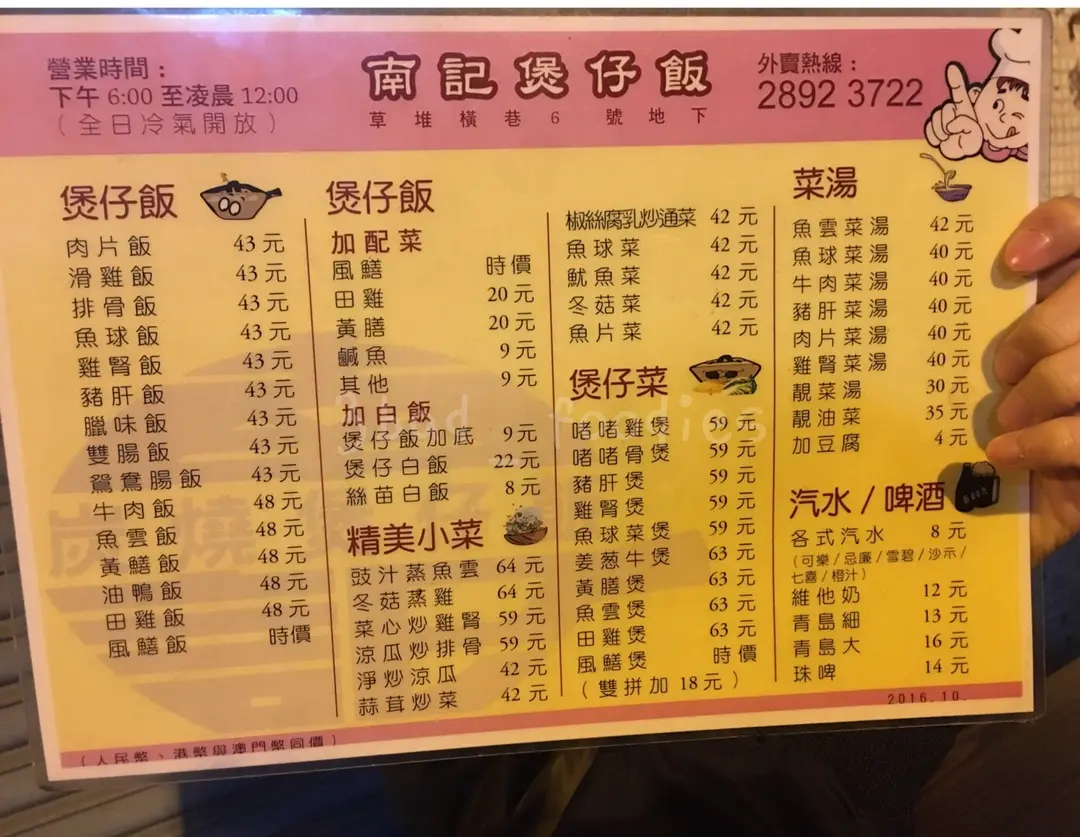 營業時間：
下午 6:00 至凌晨 12:00
（全日冷氣開放）
南記煲仔飯
草堆橫巷6號地下
外賣熱線：
2892 3722
煲仔飯
肉片飯 43元
滑雞飯 43元
排骨飯 43元
魚球飯 43元
雞腎飯 43元
豬肝飯 43元
臘味飯 43元
雙腸飯 43元
鴛鴦腸飯 43元
牛肉飯 48元
魚雲飯 48元
黃鱔飯 48元
油鴨飯 48元
田雞飯 48元
風鱔飯 時價
煲仔飯
加配菜
風鱔 時價
田雞 20元
黃膳 20元
鹹魚 9元
其他 9元
加白飯
煲仔飯加底 9元
煲仔白飯 22元
絲苗白飯 8元
精美小菜
豉汁蒸魚雲 64元
冬菇蒸雞 64元
菜心炒雞腎 59元
涼瓜炒排骨 59元
淨炒涼瓜 42元
蒜茸炒菜 42元
椒絲腐乳炒通菜 42元
魚球菜 42元
魷魚菜 42元
冬菇菜 42元
魚片菜 42元
煲仔菜
啫啫雞煲 59元
啫啫骨煲 59元
豬肝煲 59元
雞腎煲 59元
魚球菜煲 59元
姜葱牛煲 63元
黃膳煲 63元
魚雲煲 63元
田雞煲 63元
風鱔煲 時價
（雙拼加18元）
菜湯
魚雲菜湯 42元
魚球菜湯 40元
牛肉菜湯 40元
豬肝菜湯 40元
肉片菜湯 40元
雞腎菜湯 40元
靚菜湯 30元
靚油菜 35元
加豆腐 4元
汽水/啤酒
各式汽水 8元
（可樂/忌廉/雪碧/沙示/
七喜/橙汁）
維他奶 12元
青島細 13元
青島大 16元
珠啤 14元
2016.10.
（人民幣、港幣與澳門幣同價）